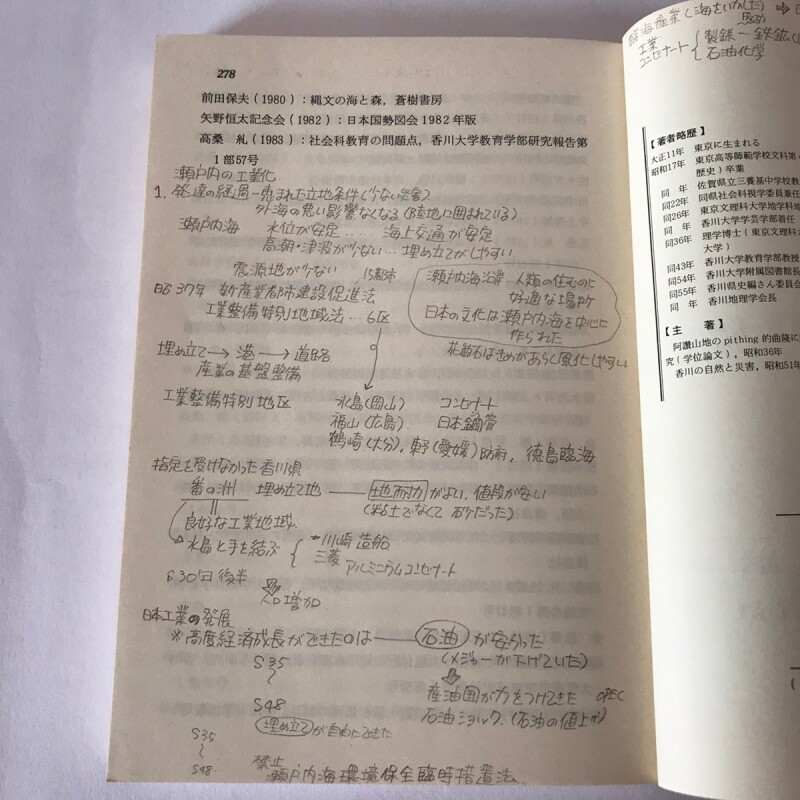 278
前田保夫(1980):縄文の海と森,蒼樹書房
矢野恒太記念会(1982):日本国勢図会1982年版
高桑 糺(1983):社会科教育の問題点,香川大学教育学部研究報告第
1部57号
瀬戸内の工業化
1. 発達の経過―恵まれた立地条件(少ない災害)
外海の悪い影響なくなる(陸地に囲まれている)
瀬戸内海 水位が安定… 海上交通が安定
高潮・津波が少ない…埋め立てがしやすい
震源地が少ない 15都市
昭37年 新産業都市建設促進法
工業整備特別地域法…6区
瀬戸内海沿岸 人類の住むのに
好適な場所
日本の文化は瀬戸内海を中心に
作られた
花崗石はきめがあらく風化しやすい
埋め立て→港→道路
産業の基盤整備
工業整備特別地区 水島(岡山) コンビナート
福山(広島) 日本鋼管
鶴崎(大分),東野(愛媛)防府,徳島臨海
指定を受けなかった香川県
番の洲 埋め立て地 ― 地耐力がよい,値段が安い
(粘土でなくて 石ケだった)
良好な工業地域
水島と手を結ぶ
川崎造船
三菱 アルミニウムコンビナート
S30年後半
人口増加
日本工業の発展
※高度経済成長ができたのは ― 石油が安かった
(メジャーが下げていた)
S35
〜
S48
産油国が力をつけてきた OPEC
石油ショック (石油の値上が)
埋め立てが自由にできた
S35
〜
S48.
禁止
瀬戸内海環境保全臨時措置法
臨海産業(海をいかした)
工業
コンビナート
製鉄―鉄鉱
石油化学
【著者略歴】
大正11年 東京に生まれる
昭和17年 東京高等師範学校文科第
歴史)卒業
同 年 佐賀県立三養基中学校教
同22年 同県社会科視学委員兼任
同26年 東京文理科大学地学科地
同 年 香川大学学芸学部着任
同36年 理学博士(東京文理科
大学)
同43年 香川大学教育学部教授
同54年 香川大学附属図書館長
同55年 香川県史編さん委員会
同 年 香川地理学会長
【主 著】
阿讃山地のpithing的曲隆に
究(学位論文),昭和36年
香川の自然と災害,昭和51年